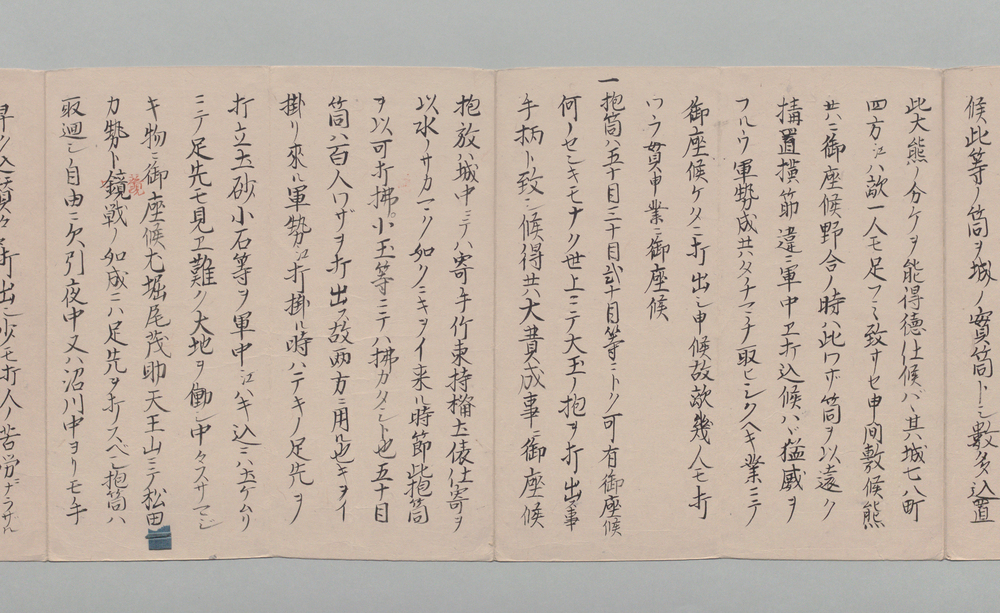 候此等ノ筒ヲ城ノ實筒トシ數多込置
此大熊ノ分ケヲ能得徳仕候ハ其城七八町
四方江ハ敵一人モ足フミ致サセ申間敷候熊
共ニ御座候野合ノ時ハ此ワホ筒ヲ以遠ク
搆置横筋違ニ軍中エ打込候ハヾ猛威ヲ
フルウ軍勢成共ハタチマチ取ヒシクヘキ業ニテ
御座候ケ様ニ打出シ申候故敵幾人モ打
ワラ貫申業ニ御座候
一抱筒ハ五十目三十目弐十目等ニトノ可有御座候
何ノセンキモナク世上ニテ大玉ノ抱ヲ打出事
手柄ト致シ候得共大費成事ニ御座候
抱放ハ城中ニテハ寄手竹束持楯土俵仕寄ヲ
以水ノサカマク如クニキヲイ来ル時節此抱筒
ヲ以可打拂小玉等ニテハ拂カタシト也五十目
筒ハ百人ワザヲ打出ス故両方ニ用也キヲイ
掛リ來ル軍勢江打掛ル時ハテキノ足先ヲ
打立土砂小石等ヲ軍中江ハキ込ミハ土ケムリ
ニテ足先モ見エ難ク大地ヲ働シ中々スサマシ
キ物ニ御座候尤堀尾茂助天王山ニテ松田
カ勢ト鏡戰ノ如成ニハ足先ヲ打スベシ抱筒ハ
取廻シ自由ニ欠引夜中又ハ沼川中ヨリモ手